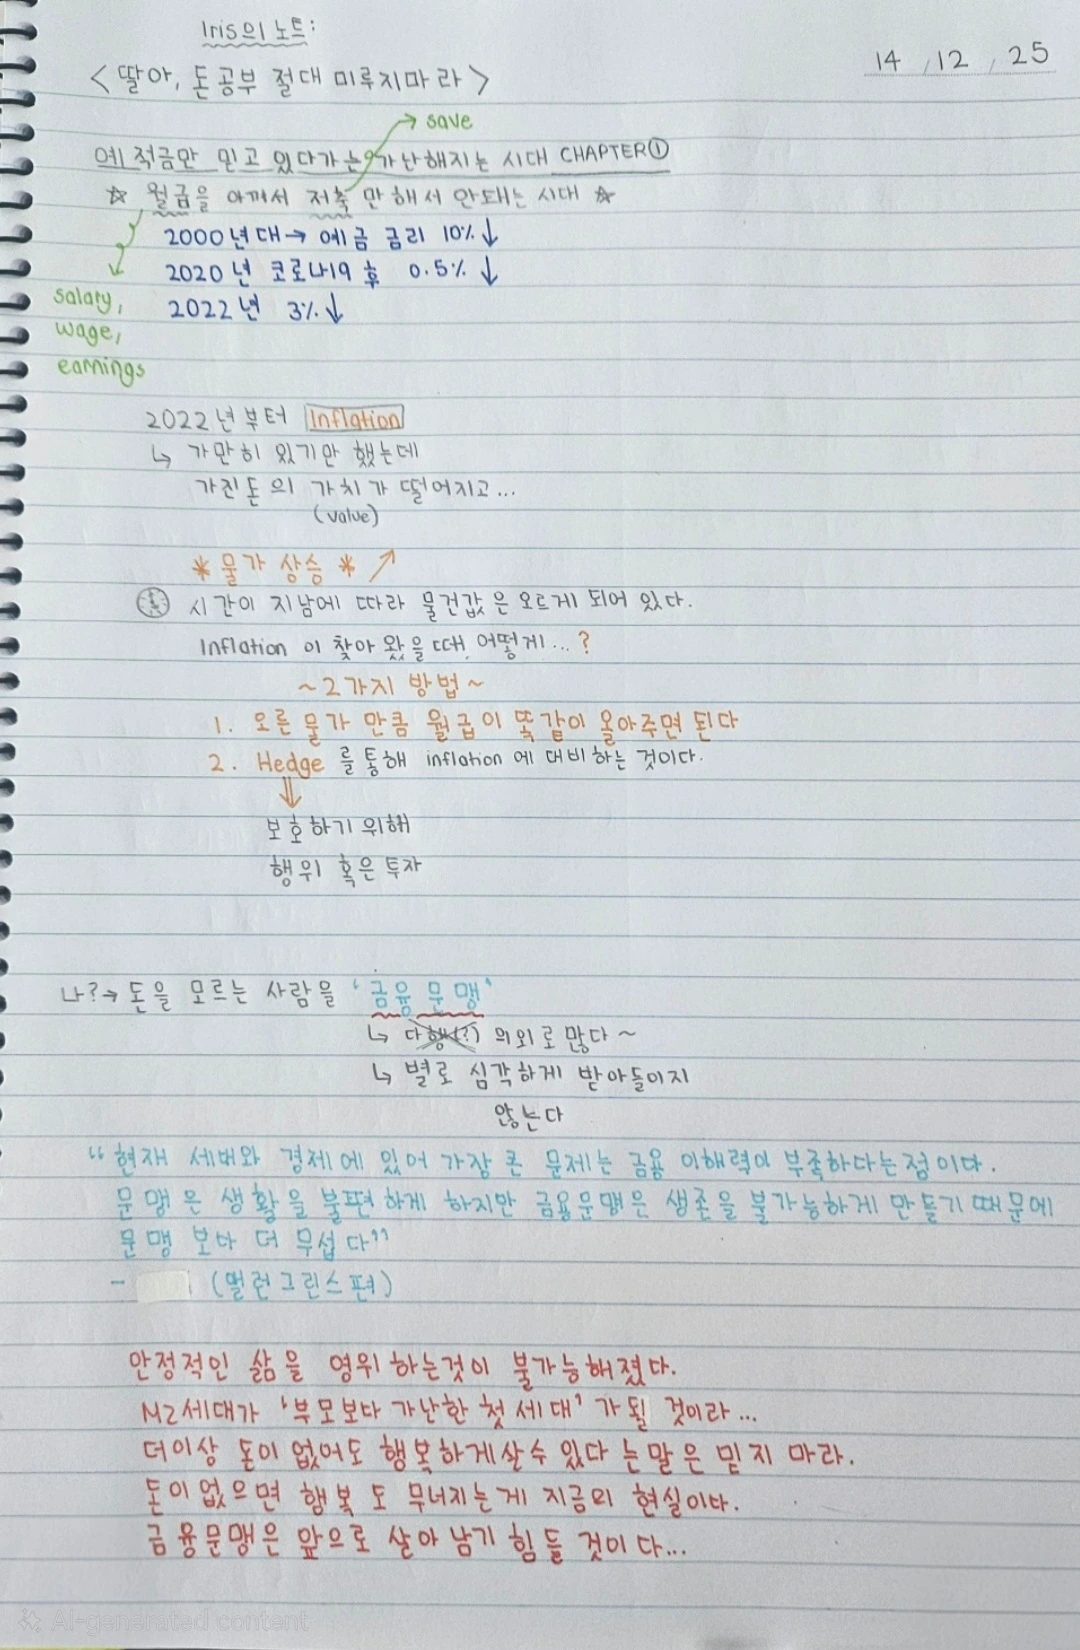 Iris의 노트:
14 , 12 , 25
<딸아, 돈공부 절대 미루지마라>
→ save
예적금만 믿고 있다가는 가난해지는 시대 CHAPTER①
☆ 월급을 아껴서 저축만 해서 안돼는 시대 ☆
2000년대→ 예금 금리 10%↓
2020년 코로나19 후 0.5% ↓
2022년 3%↓
salary,
wage,
earnings
2022년부터 Inflation
↳ 가만히 있기만 했는데
가진돈의 가치가 떨어지고...
(value)
* 물가 상승 * ↗
시간이 지남에 따라 물건값은 오르게 되어 있다.
Inflation 이 찾아 왔을 때, 어떻게...?
~2가지 방법~
1. 오른 물가 만큼 월급이 똑같이 올아주면 된다
2. Hedge 를 통해 inflation 에 대비하는 것이다.
⇓
보호하기 위해
행위 혹은 투자
나?→ 돈을 모르는 사람을 '금융문맹'
↳ 다행(?) 의외로 많다~
↳ 별로 심각하게 받아들이지
않는다
“현재 세대와 경제에 있어 가장 큰 문제는 금융 이해력이 부족하다는점이다.
문맹은 생활을 불편하게 하지만 금융문맹은 생존을 불가능하게 만들기 때문에
문맹 보다 더 무섭다”
- (앨런그린스펀)
안정적인 삶을 영위하는것이 불가능해졌다.
MZ세대가 '부모보다 가난한 첫 세대' 가 될 것이라...
더이상 돈이 없어도 행복하게살수 있다 는말은 믿지 마라.
돈이없으면 행복도 무너지는게 지금의 현실이다.
금융문맹은 앞으로 살아남기 힘들 것이다...
AI-generated content